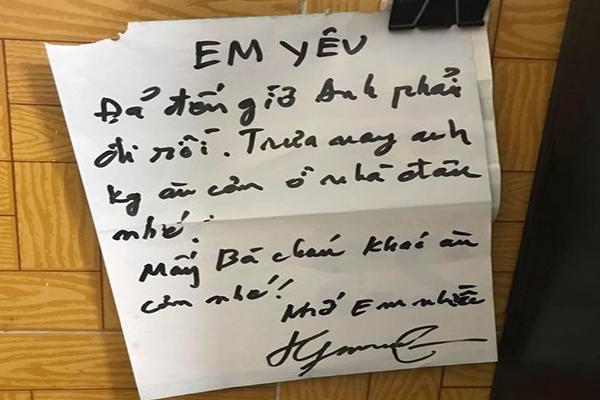 EM YÊU
Đả đến giờ Anh phải
đi rồi. Trưa nay anh
kg ăn cơm ở nhà đâu
nhé!
Mấy Bà cháu khoái ăn
cơm nhé!
Nhớ Em nhiều